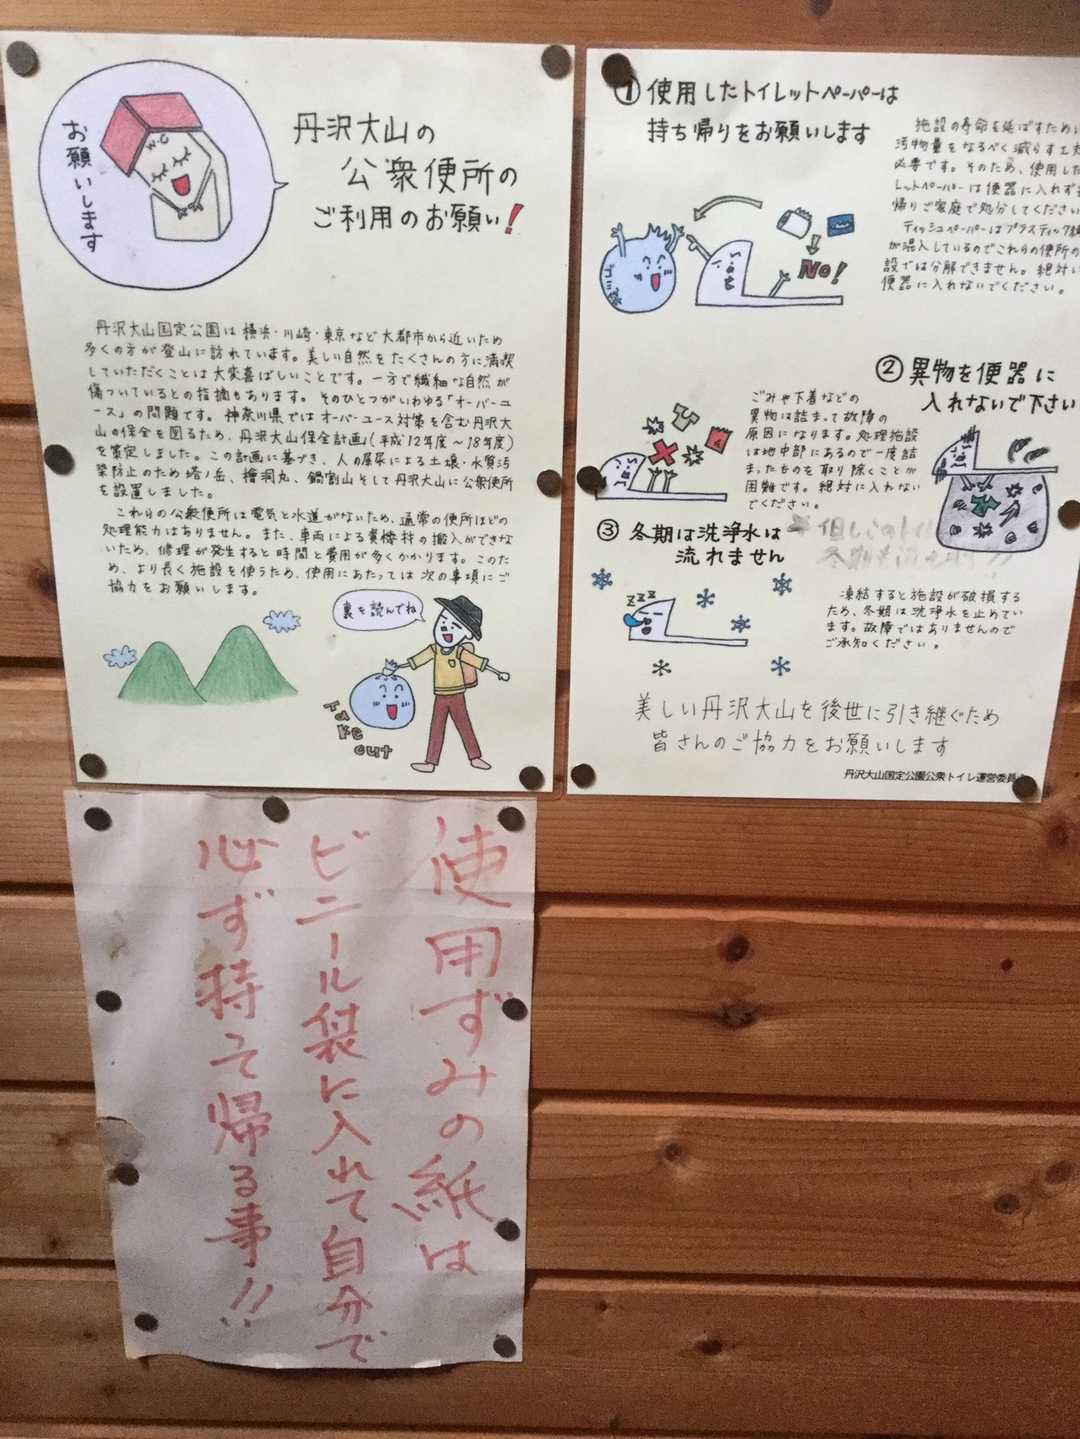 お願いします
W・C
丹沢大山の
公衆便所の
ご利用のお願い！
丹沢大山国定公園は横浜・川崎・東京など大都市から近いため
多くの方が登山に訪れています。美しい自然をたくさんの方に満喫
していただくことは大変喜ばしいことです。一方で繊細な自然が
傷ついているとの指摘もあります。そのひとつがいわゆる「オーバーユ
ース」の問題です。神奈川県ではオーバーユース対策を含む丹沢大
山の保全を図るため、丹沢大山保全計画(平成12年度～18年度)
を策定しました。この計画に基づき、人の屎尿による土壌・水質汚
染防止のため塔ノ岳、檜洞丸、鍋割山そして丹沢大山に公衆便所
を設置しました。
これらの公衆便所は電気と水道がないため、通常の便所ほどの
処理能力はありません。また、車両による資機材の搬入ができな
いため、修理が発生すると時間と費用が多くかかります。このた
め、より長く施設を使うため、使用にあたっては次の事項にご
協力をお願いします。
裏を読んでね
Take
out
①使用したトイレットペーパーは
持ち帰りをお願いします
施設の寿命を延ばすため
汚物量をなるべく減らす工夫
必要です。そのため、使用した
レットペーパーは便器に入れず
帰りご家庭で処分してください
ティッシュペーパーはプラスティック
が混入しているのでこれらの便所の
設では分解できません。絶対に
便器に入れないでください。
NO!
②異物を便器に
入れないで下さい
ごみや下着などの
異物は詰まって故障の
原因になります。処理施設
は地中部にあるので一度詰
まったものを取り除くことが
困難です。絶対に入れない
でください。
③冬期は洗浄水は
流れません
但しこのトイレ
zzz
凍結すると施設が破損する
ため、冬期は洗浄水を止めてい
ます。故障ではありませんので
ご承知ください。
美しい丹沢大山を後世に引き継ぐため
皆さんのご協力をお願いします
丹沢大山国定公園公衆トイレ運営委員
使用ずみの紙は
ビニール袋に入れて自分で
必ず持って帰る事!!